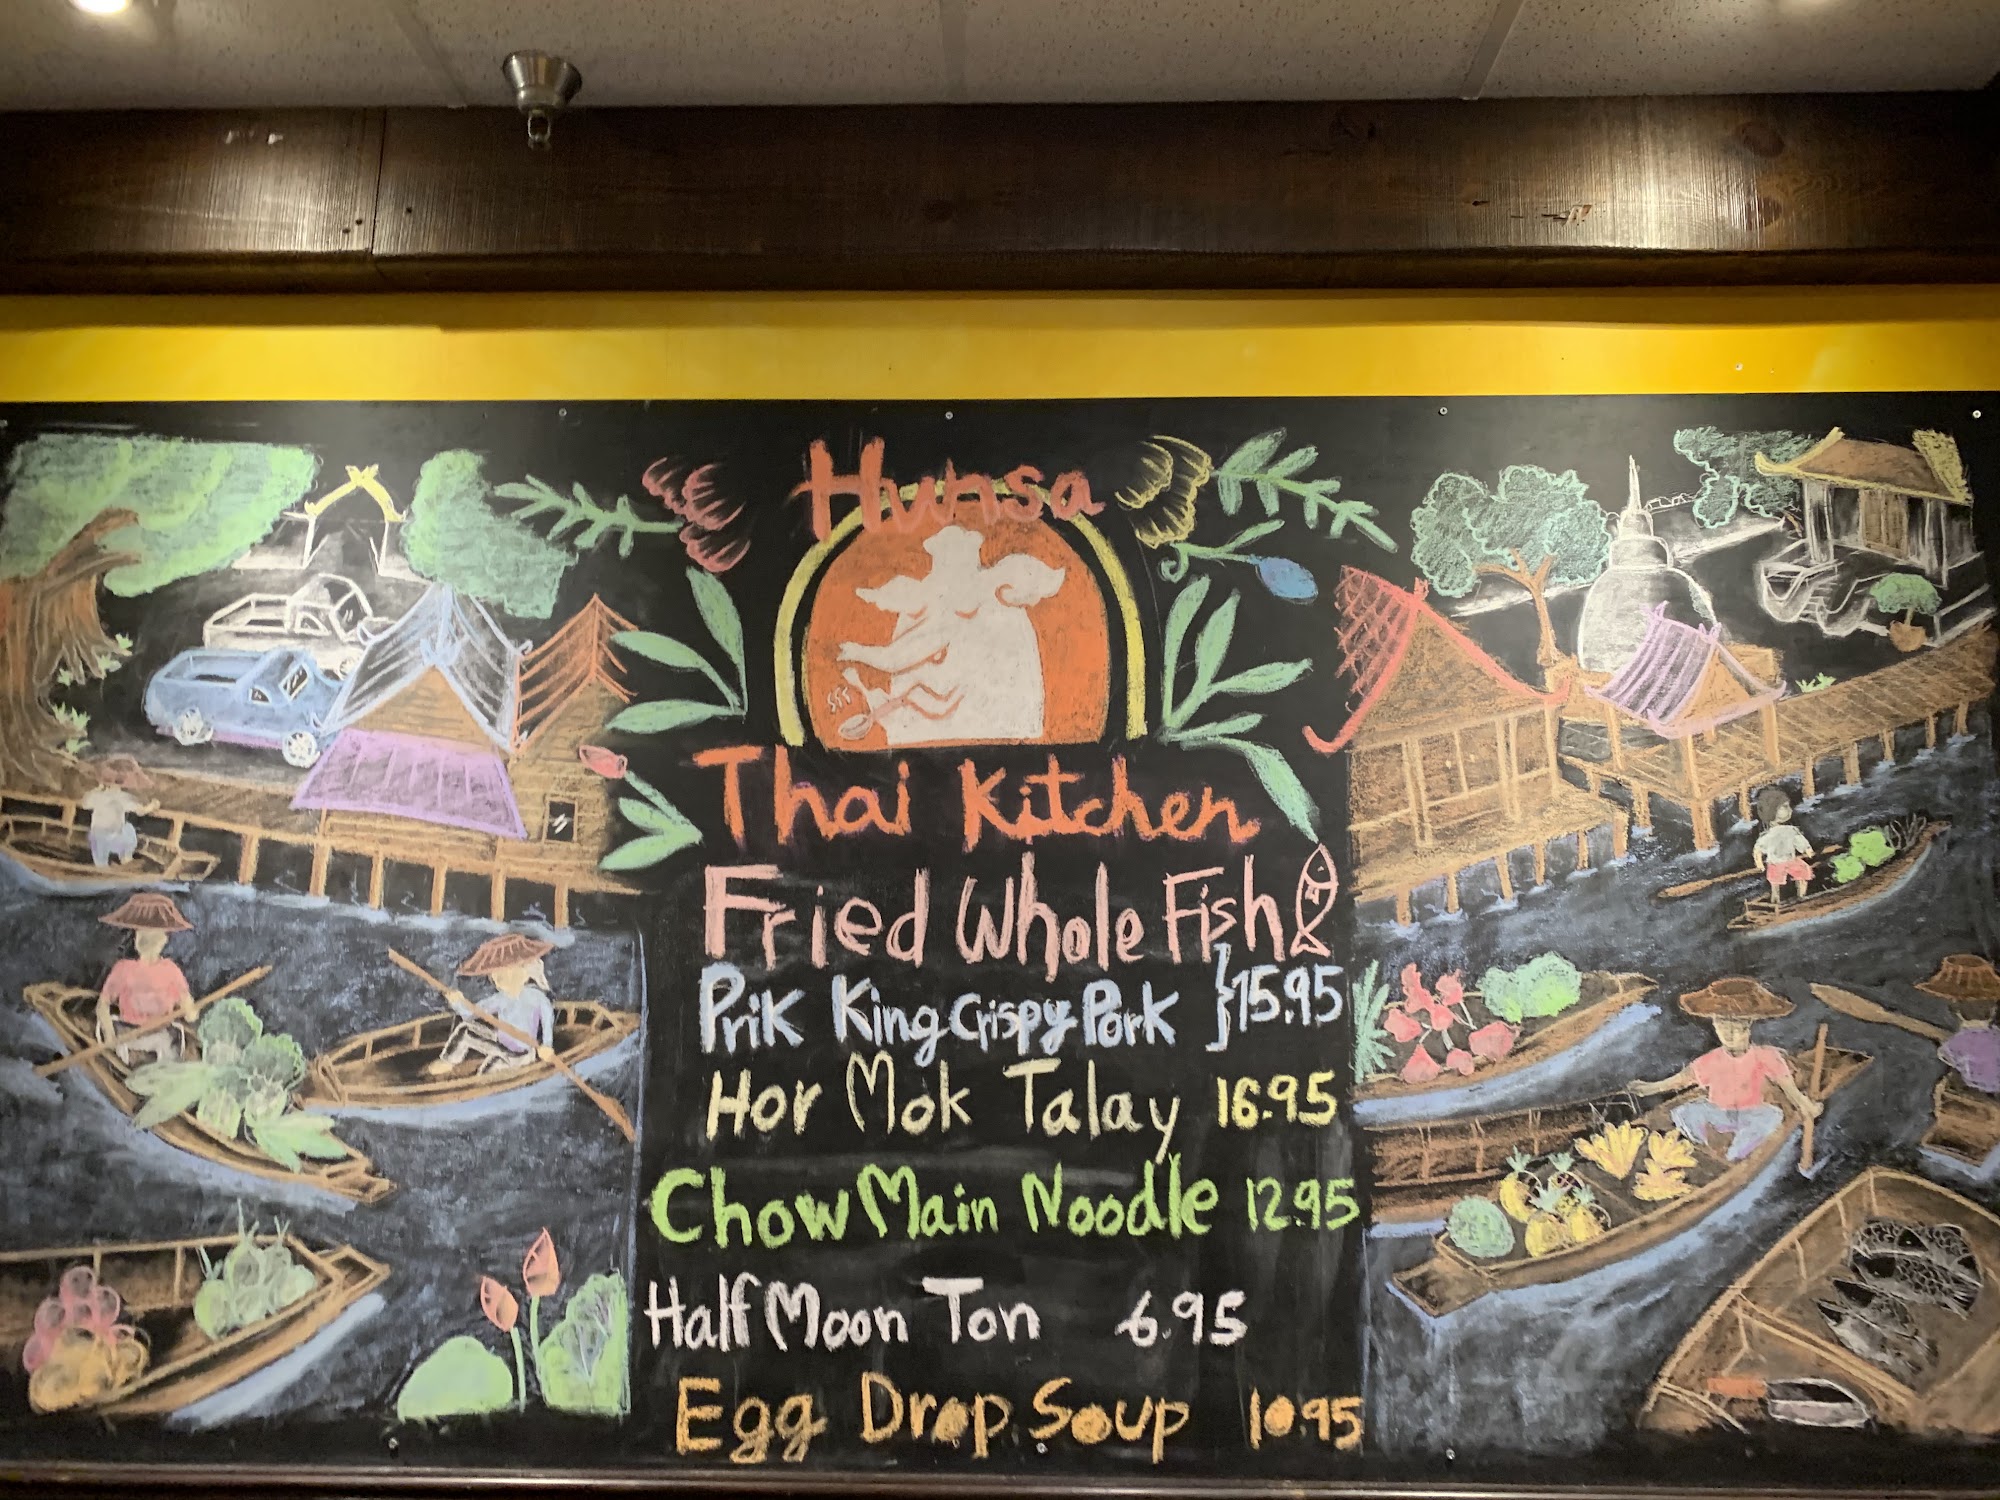 Hunsa
Thai Kitchen
Fried Whole Fish
Prik King Crispy Pork } 15.95
Hor Mok Talay 16.95
Chow Main Noodle 12.95
Half Moon Ton 6.95
Egg Drop Soup 10.95